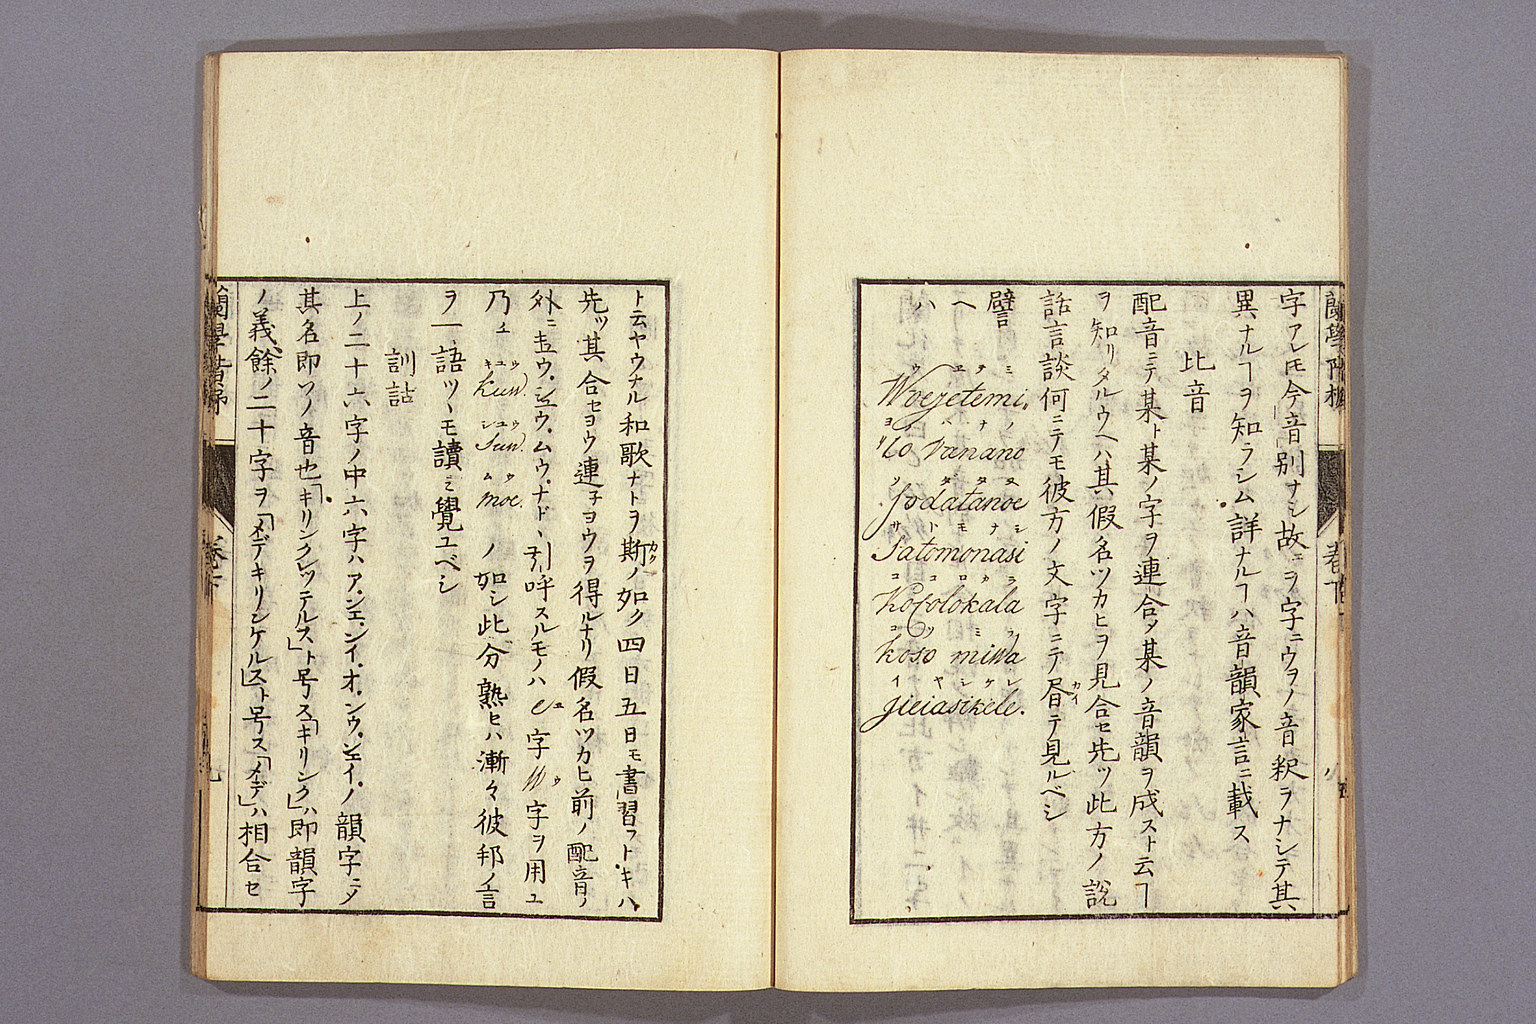 字アレ𪜈今音別ナシ故ニヲ字ニウヲノ音釈ヲナシテ其
異ナルヿヲ知ラシム詳ナルヿハ音韻家言ニ載ス
比音
配音ニテ某ト某ノ字ヲ連合メ某ノ音韻ヲ成スト云ヿ
ヲ知リタルウヘハ其假名ツカヒヲ見合セ先ツ此方ノ說
話言談何ニテモ彼方ノ文字ニテ
テ見ルベシ
譬
ヘ
ハ
ウユテミ
Woejetemi.
Vanano
ノダタヌ
fodatanoe
サトモナシ
Satomonasi
ココロカラ
Kokolokala
コソミワ
koso miwa
イヤシケレ
jieiasikele.
蘭學階梯
卷下
ト云ヤウナル和歌ナトヲ斯ノ如ク四日五日モ書習フトキハ
先ツ其合セヨウ連子ヨウヲ得ルナリ假名ツカヒ前ノ配音ノ
外ニキウ、シュウ、ムウ、ナド、引呼スルモノハ e字W字ヲ用ユ
乃ユ
キユウ
kuw.
シユウ
Suw.
ムウ
moe.
ノ如シ此分熟セハ漸々彼邦ノ言
ヲ一語ツヽモ讀ミ覺ユベシ
訓詁
上ノ二十六字ノ中六字ハア、ンエ、ンイ、オ、ンウ、ンエイ、ノ韻字ニメ
其名即ソノ音也「キリンクレッテルス」ト号ス「キリンク」ハ即韻字
ノ義餘ノ二十字ヲ「メデキリンケルス」ト号ス「メデ」ハ相合セ
蘭學階梯
卷下
九